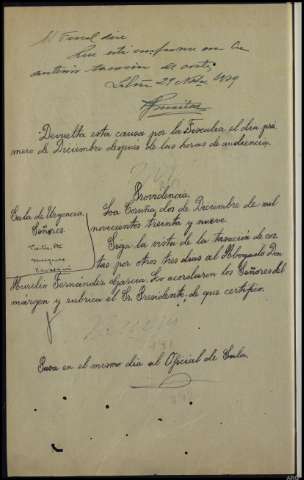 El Fiscal dice
Que está conforme con la
anterior tasación de costas
29 Nbre 1939
Devuelta esta causa por la Fiscalía, el día pri
mero de Diciembre después de las horas de audiencia.
Providencia.
Sala de Urgencia
Señores
La Coruña, dos de Diciembre de mil
novecientos treinta y nueve
la nota de la tasación de cos
tas por otros tres días al Abogado Don
Fernández García. Lo acordaron los Señores del
márgen y rubrica el Sr. Presidente, de que certifico.
Pasa en el mismo día al Oficial de Sala.